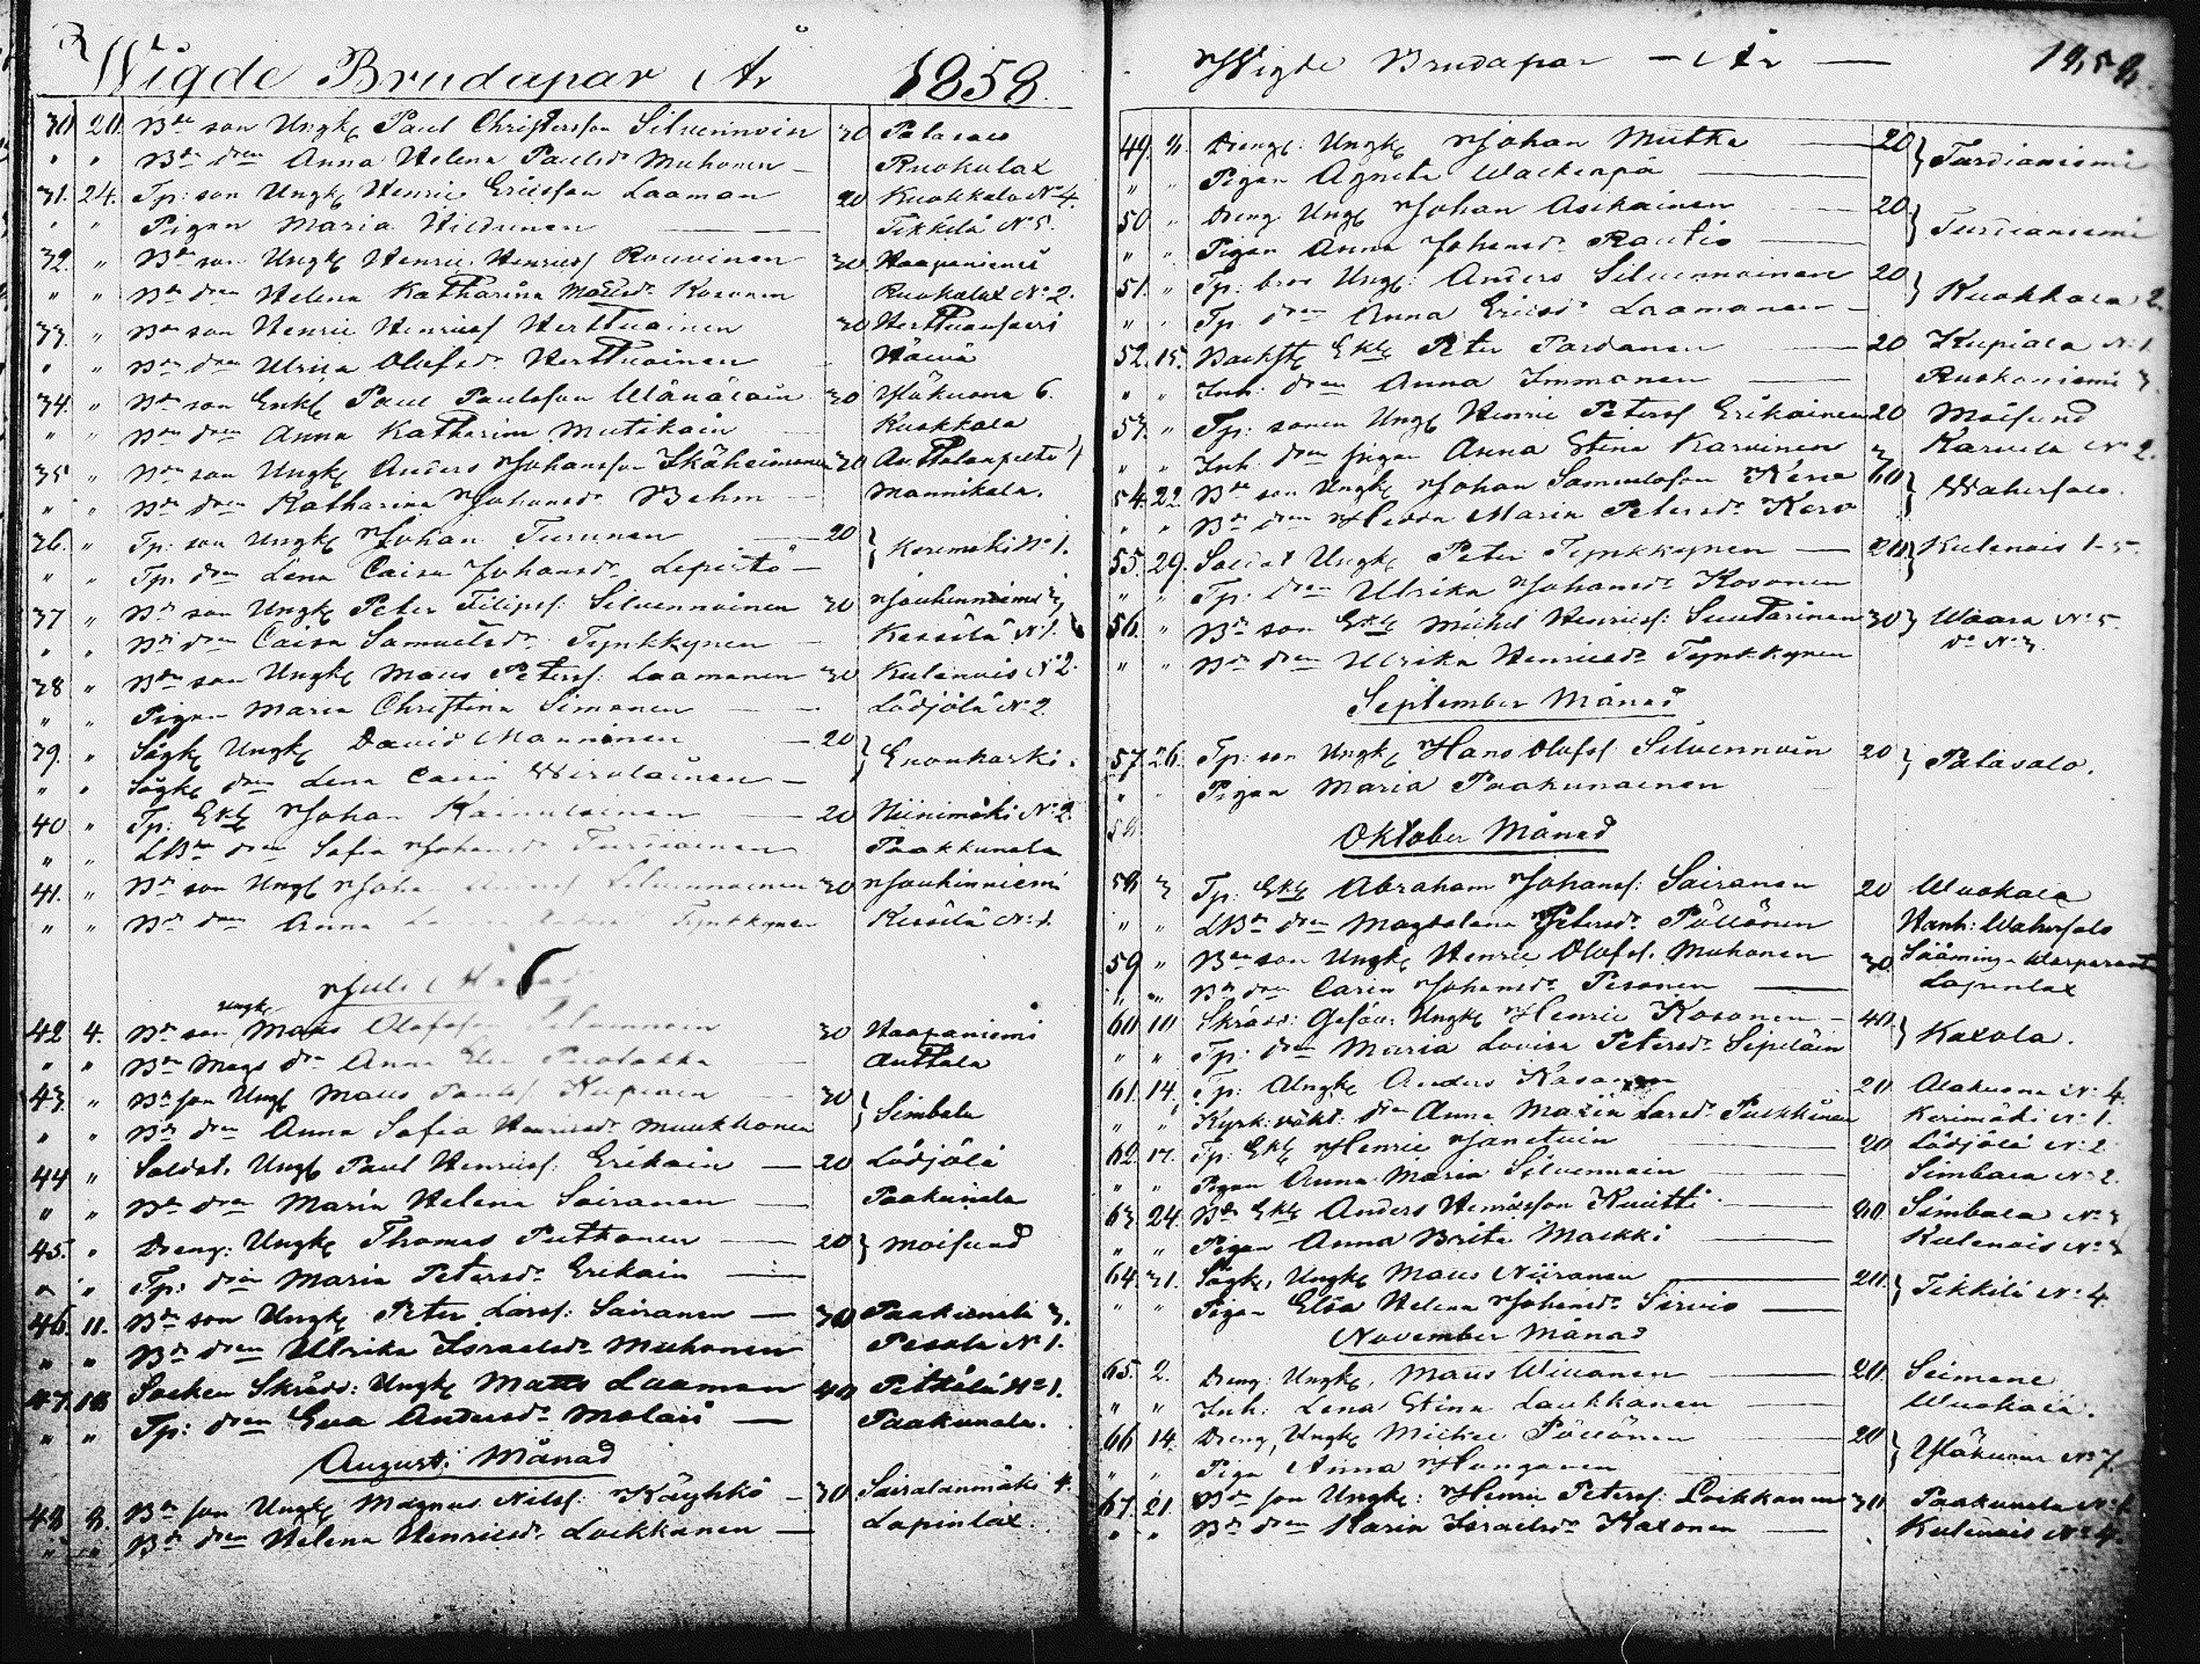 Wigde Brudapar År 1858.
30 20. Bde son Ungk Paul Christersson Silvennoin 30 Patasalo
" " Bde dren Anna Helena Paulsdr Muhonen Ruokolax
31. 24. Tp: son Ungk Henric Ericsson Laaman 20 Kuokkala No 4.
" " Pigan Maria Hildunen Tikkilä No 5.
32. " Bde son Ungk Henric Henricss Rouvinen 30 Haapaniemi
" " Bde dren Helena Katharina Matsdr Kosonen Ruokolax No 2.
33. " Bde son Henric Henricss Herttuainen 30 Herttuansaari
" " Bde dren Ulrica Olofsdr Herttuainen
34. " Bde son Enkl Paul Paulsson 30 Yläkuona 6.
" " Bde dren Anna Katharina Mutikain Kuokkala
35 " Bde son Ungk Anders Johansson Ikäheimonen 30
" " Bde dren Katharina Johansdr Behm Mannikala.
36. " Tp: son Ungk Johan Turunen 20 } Kerimäki No 1.
" " Tp. dren Lena Caisa Johansdr Lepistö
37 " Bde son Ungk Peter Filipss: Silvennoinen 30 Jouhenniemi 3
" " Bde dren Caisa Samuelsdr Tynkkynen Kessilä No 1.
38 " Bde son Ungk Maus Peterss: Laamanen 30 Kulennois No 2.
" " Pigan Maria Christina Simonen Lödjölä No 2.
39. " Sågk Ungk David Manninen 20 } Enonkoski.
" " Sågk dren Lena Caisa Wirolainen
40 " Tp: Ekl Johan Kainulainen 20 Niinimäki No 2.
" " LBde dren Sofia Johansdr Turdiainen Paakkunala
41. " Bde son Ungk Johan Silvennoinen 30 Jouhinniemi
" " Bde dren Anna Tynkkynen Kessilä No 1.
Juli Månad
Ungk
42 4. Bde son Maus Olofsson Silvennoin 30 Haapaniemi
" " Bde Mags dr Anna Elsa Puolakka Auttala
43. " Bde son Ungk Maus Paulss Kupiain 30 } Simbala
" " Bde dren Anna Sofia Henricsdr Muukkonen
44 " Soldat. Ungk Paul Henricss: Erikain 20 Lödjölä
" " Bde dren Maria Helena Sairanen Paakunala
45. " Dreng: Ungk Thomas Puttonen 20 } Moisund
" " Tp: dren Maria Petersdr Erikain
46. 11. Bde son Ungk Peter Larss: Sairanen 30 Paakunala 3.
" " Bde dren Ulrika Israelsdr Muhonen Pesola No 1.
47. 18 Socken Skrädd: Ungk Matts Laaman 40 Pitkälä No 1.
" " Tp: dren Eva Andersdr Molari Paakunala.
Augusti Månad
48 8. Bde son Ungk Magnus Nilss: Käyhkö 30 Sairalanmäki 4.
" " Bde dren Helena Henricsdr Loikkanen Lapinlax.
Wigde Brudapar År 1858
49. 8. Drengl: Ungk Johan Mutka 20 } Turdianiemi
" " Pigan Agneta Wackerpä
50 " Dreng Ungk Johan Asikainen 20 } Turdianiemi
" " Pigan Anna Johansdr Rautio
51. " Tp: bror Ungk: Anders Silvennoinen 20 } Kuokkala 2
" " Tp. dren Anna Ericsdr Laamanen
52. 15. Backst Ekl Peter Pardanen 20 Kupiala No 1.
" " Inh: dren Anna Immonen Ruokoniemi 3.
53. " Tp: sonen Ungk Henric Peterss Erikainen 20 Moisund
" " Inh: dren pigan Anna Stina Karvinen Karvila No 2.
54. 22. Bde son Ungk Johan Samuelsson Kero 30 } Wahersalo.
" " Bde dren Hedda Maria Petersdr Kero
55. 29. Soldat Ungk Peter Tynkkynen 20 } Kulennois 1-5.
" " Tp: dren Ulrika Johansdr Kosonen
56. " Bde son Ekl Michel Henricss: Suutarinen 30 } Waara No 5.
" " Bde dren Ulrika Henricsdr Tynkkynen do No 3.
September Månad
57. 26. Tp: son Ungk Hans Olofss Silvennoin 20 } Patasalo.
" " Pigan Maria Paakunainen
58
Oktober Månad
58 3 Tp: Ekl Abraham Johanss: Sairanen 20 Wuokala
" " LBde dren Magdalena Petersdr Pöllönen Hanh: Wahersalo
59 " Bde son Ungk Henric Olofss. Muhonen 30 Sääming. Warparanta
" " Bde dren Carin Johansdr Pesonen Lapinlax
60 10 Skrädd: Gesäll: Ungk Henric Kosonen 40 } Kaxola.
" " Tp: dren Maria Lovisa Petersdr Sipiläin
61. 14. Tp: Ungk Anders Kasanen 20 Alakuona No 4.
" " Kyrk: väkt: dren Anna Maria Larsdr Puikkinen Kerimäki No 1.
62. 17. Tp: Ekl Henric Janatuin 20 Lödjölä No 2
" " Pigan Anna Maria Silvennoin Simbala No 2.
63. 24. Bde Ekl Anders Henricsson Kuitti 20 Simbala No 3
" " Pigan Anna Brita Maikki Kulennois No
64. 31. Sågk, Ungk Maus Niiranen 20. } Tikkilä No 4.
" " Pigan Elsa Helena Johansdr Sirvio
November Månad
65. 2. Dreng: Ungk, Maus Willanen 20. Seimene
" " Inh: Lena Stina Laukkanen Wuokala.
66 14. Dreng, Ungk Michel Pöllönen 20 } Yläkuona No 7.
" " Piga Anna Hunganen
67. 21. Bde son Ungk: Henric Peterss: Loikkanen 30 Paakunala No
" " Bde dren Karin Israelsdr Kaxonen Kulennois No 4.